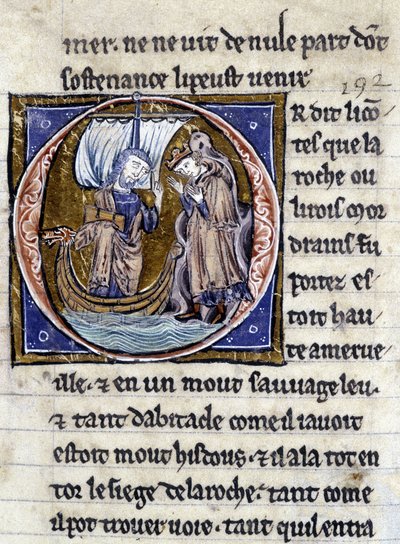 mer. ne ne uit de nule part dōt
sostenance li peust uenir
192
OR dit li cō
tes que la
roche ou
li rois mor
drains fu
portez es
toit hau
te a merue
ille. ⁊ en un mout sauuage leu.
⁊ tant dabitacle come il i auoit
estoit mout hisdous. ⁊ il ala tot en
tor le siege de la roche. tant come
il pot trouer uoie. tant quil entra